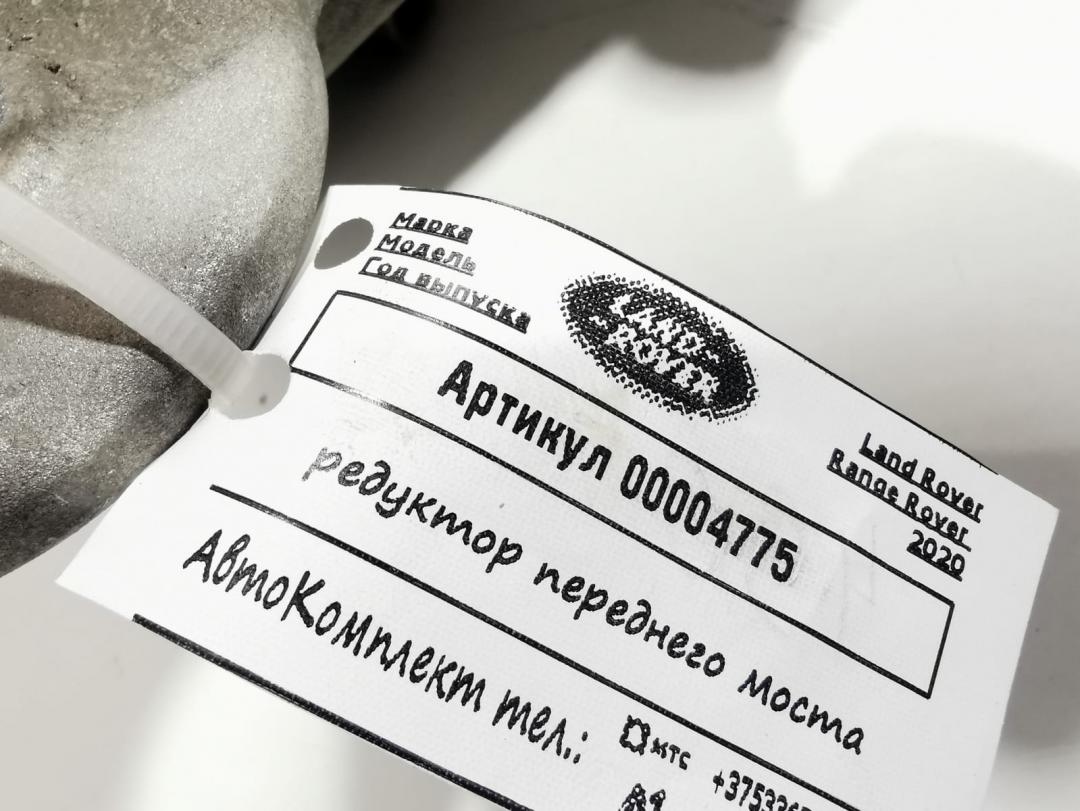 Марка
Модель
Год выпуска
LAND-
ROVER
Land Rover
Range Rover
2020
Артикул 00004775
редуктор переднего моста
АвтоКомплект тел.:
мтс